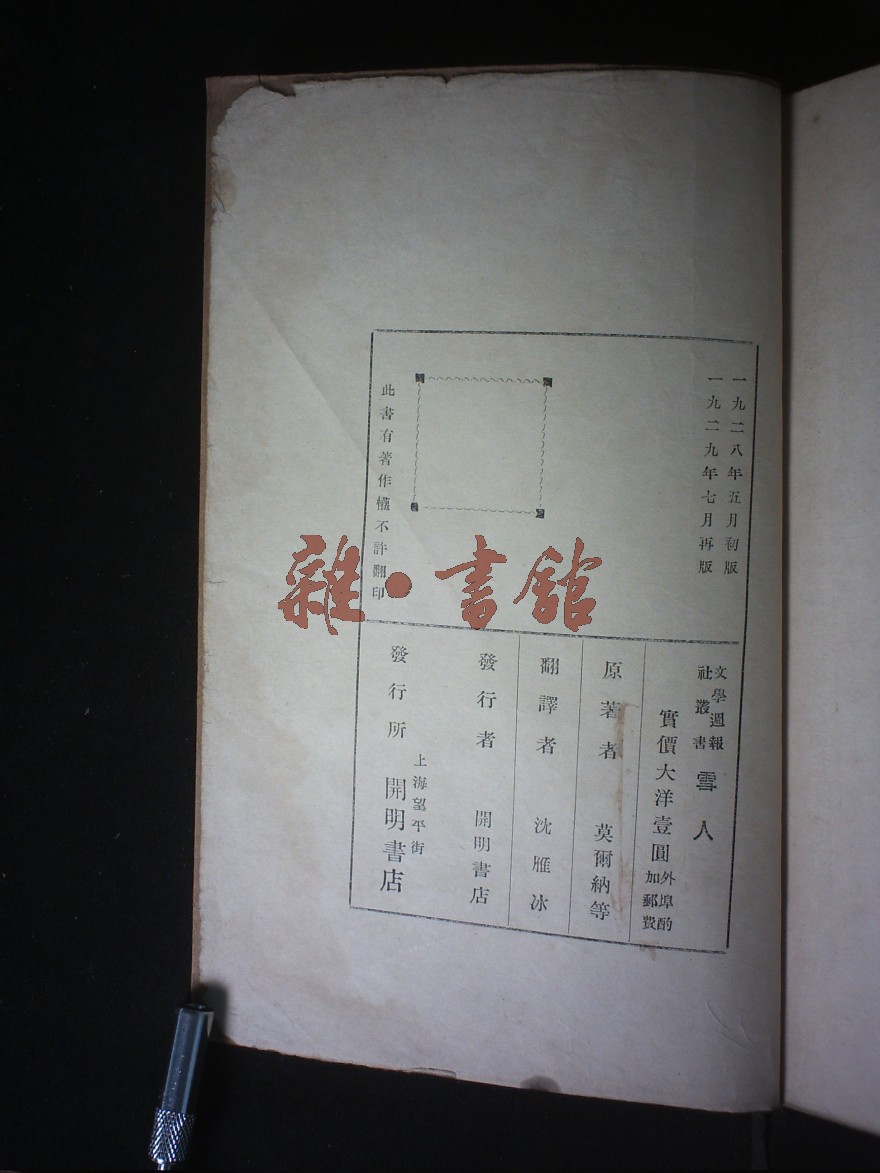 一九二八年五月初版
一九二九年七月再版
此書有著作權不許翻印
文學週報社叢書
雪人
實價大洋壹圓
外埠酌加郵費
原著者 莫爾納等
翻譯者 沈雁冰
發行者 開明書店
上海望平街
發行所 開明書店
雜·書館